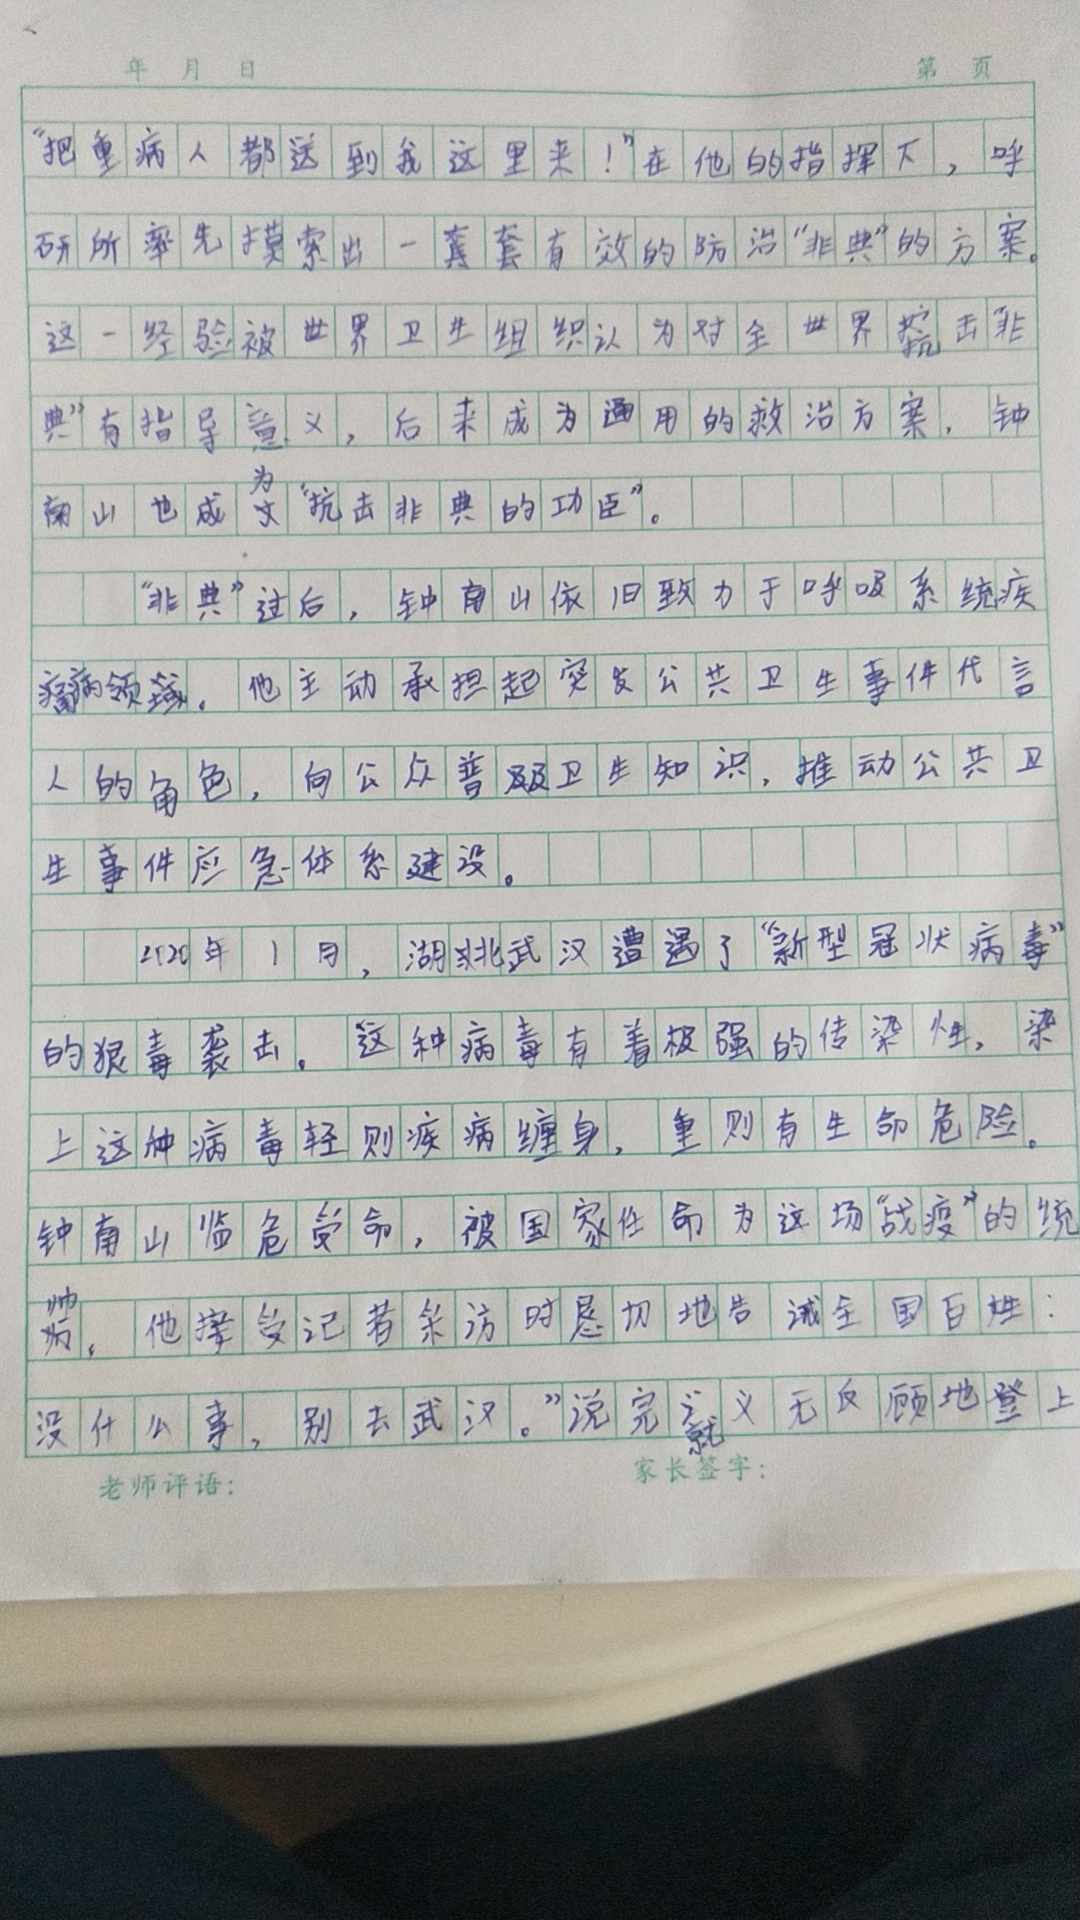 年 月 日 第 页
“把重病人都送到我这里来！”在他的指挥下，呼
研所率先摸索出一套套有效的防治“非典”的方案。
这一经验被世界卫生组织认为对全世界抗击“非
典”有指导意义，后来成为通用的救治方案，钟
南山也成为“抗击非典的功臣”。
“非典”过后，钟南山依旧致力于呼吸系统疾
病领域。他主动承担起突发公共卫生事件代言
人的角色，向公众普及卫生知识，推动公共卫
生事件应急体系建设。
2020年1月，湖北武汉遭遇了“新型冠状病毒”
的狠毒袭击。这种病毒有着极强的传染性，染
上这种病毒轻则疾病缠身，重则有生命危险。
钟南山临危受命，被国家任命为这场“战疫”的统
帅。他接受记者采访时恳切地告诫全国百姓：
没什么事，别去武汉。”说完就义无反顾地登上
老师评语： 家长签字：